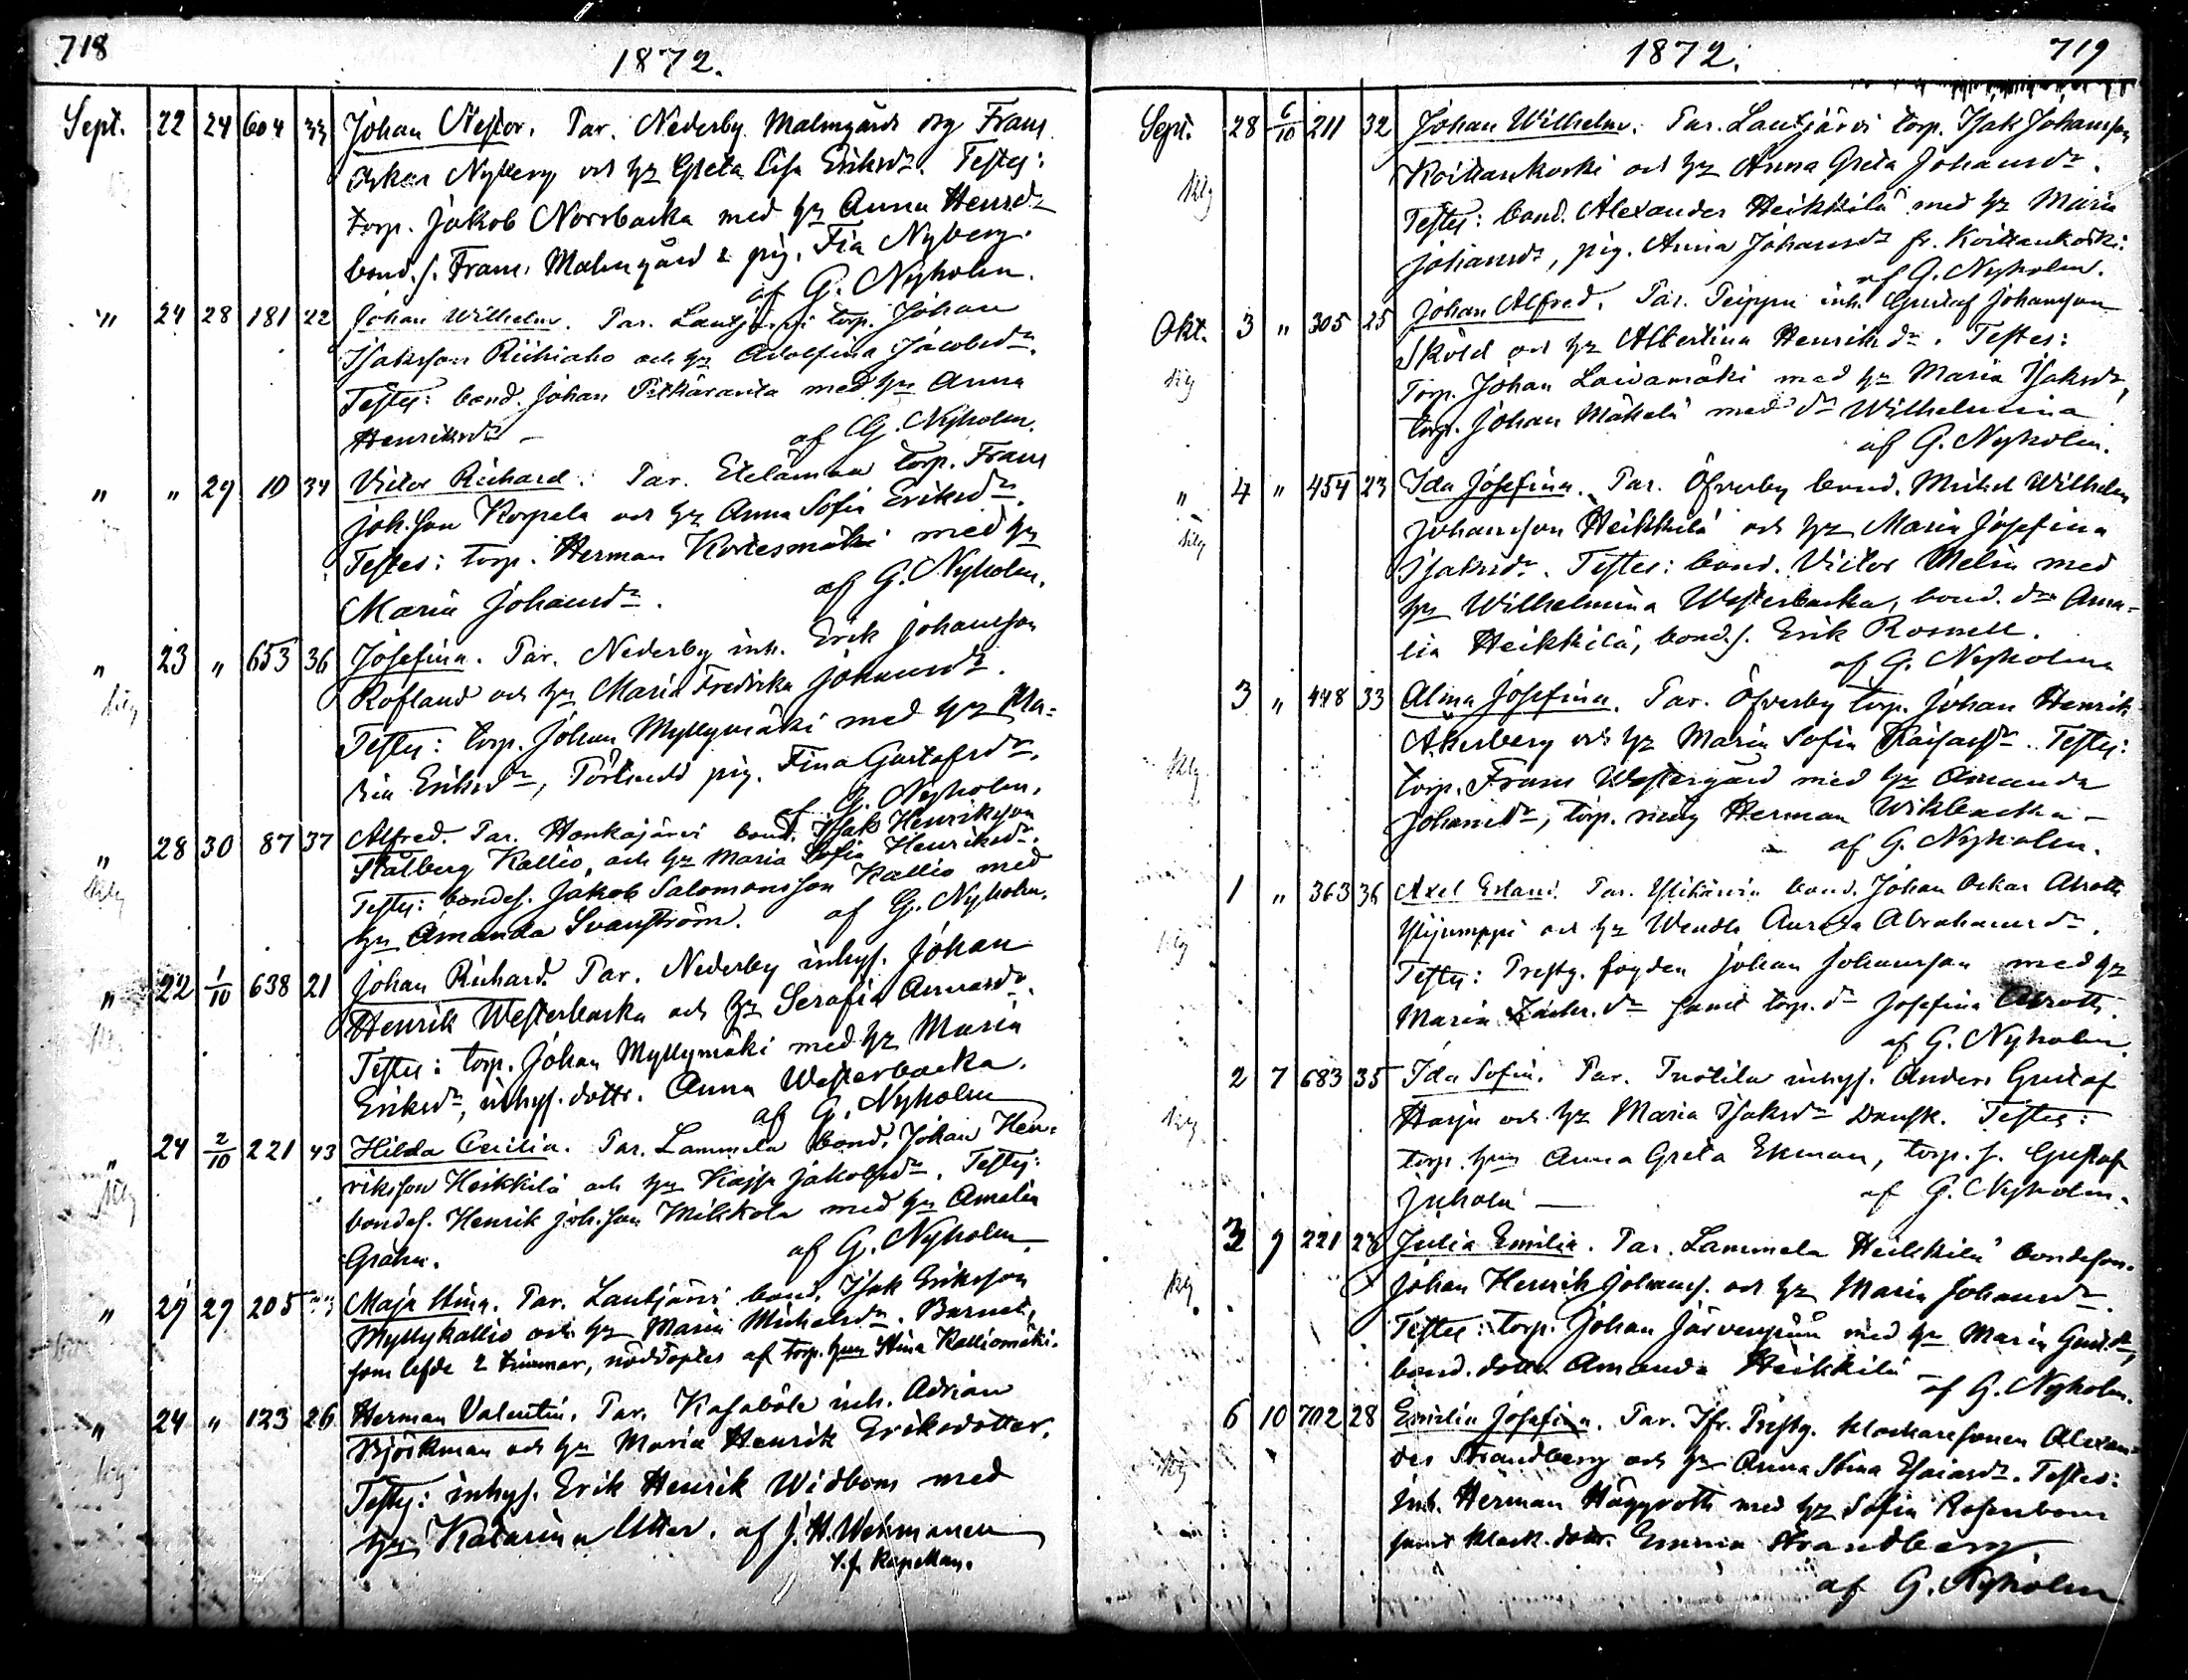 718
1872.
Sept. 22 24 604 33 Johan Nestor. Par. Nederby Malmgård drg Frans
Oskar Nyberg och hu Greta Lisa Eriksdr. Testes:
torp. Jakob Norrbacka med hu Anna Henrsdr
bond.s. Frans Malmgård & pig. Fia Nyberg.
af G. Nyholm.
" 24 28 181 22 Johan Wilhelm. Par. Lautjärvi torp. Johan
Isaksson Riihiaho och hu Adolfina Jacobsdr.
Testes: bond. Johan Pitkäranta med hu Anna
Henriksdr – af G. Nyholm.
" " 29 10 34 Victor Richard. Par. Etelämaa torp. Frans
Joh.son Korpela och hu Anna Sofia Eriksdr.
Testes: torp. Herman Kortesmäki med hu
Maria Johansdr. af G. Nyholm.
" 23 " 653 36 Josefina. Par. Nederby inh. Erik Johansson
Rosland och hu Maria Fredrika Johansdr.
Testes: torp. Johan Myllymäki med hu Ma-
ria Eriksdr, pig. Fina Gustafsdr.
af G. Nyholm.
" 28 30 87 37 Alfred. Par. Honkajärvi bond. Isak Henriksson
Stålberg Kallio, och hu Maria Sofia Henriksdr.
Testes: bondes. Jakob Salomonsson Kallio med
hu Amanda Svanström. af G. Nyholm.
" 22 1/10 638 21 Johan Richard. Par. Nederby inhys. Johan
Henrik Westerbacka och hu Serafia
Testes: torp. Johan Myllymäki med hu Maria
Eriksdr, inhys. dottr. Anna Westerbacka.
af G. Nyholm
" 24 2/10 221 43 Hilda Cecilia. Par. Lammela bond. Johan Hen-
riksson Heikkilä och hu Kajsa Jakobsdr. Testes:
bondes. Henrik Joh.son Mikkola med hu Amalia
Grahn. af G. Nyholm
" 29 29 205 Maja Stina. Par. Lautjärvi bond. Isak Eriksson
Myllykallio och hu Maria Michelsdr. Barnet,
som lefde 2 timmar, nöddöptes af torp. hun Stina Kalliomäki.
" 24 " 123 26 Herman Valentin. Par. Kasaböle inh. Adrian
Björkman och hu Maria Henrik Eriksdotter.
Testes: inhys. Erik Henrik Widbom med
hu Katarina Utter. af J. H. Weismanen
v.f. Kapellan.
1872. 719
Sept. 28 6/10 211 32 Johan Wilhelm. Par. Lautjärvi torp. Isak Johansson
Koittankoski och hu Anna Greta Johansdr.
Testes: bond. Alexander Heikkilä med hu Maria
Johansdr, pig. Anna Johansdr fr. Koittankoski.
af G. Nyholm.
Okt. 3 " 305 25 Johan Alfred. Par. Peippu inh. Gustaf Johansson
Sköld och hu Albertina Henriksdr. Testes:
Torp. Johan Laivamäki med hu Maria Isaksdr,
torp. Johan Mäkelä med dr Wilhelmina
af G. Nyholm.
" 4 " 454 23 Ida Josefina. Par. Öfverby bond. Mickel Wilhelm
Johansson Heikkilä och hu Maria Josefina
Isaksdr. Testes: bond. Victor Melin med
hu Wilhelmina Westerbacka, bond. dr Ama-
lia Heikkilä, bond.s. Erik Rosnell.
af G. Nyholm
3 " 448 33 Alma Josefina. Par. Öfverby torp. Johan Henrik
Åkerberg och hu Maria Sofia Testes:
torp. Frans Westergård med hu Amanda
Johansdr, torp. måg Herman Wikbacka –
af G. Nyholm.
1 " 363 36 Axel Erland. Par. bond. Johan Oskar Alroth
och hu Wendla Aurora Abrahamsdr.
Testes: Prestg. fogden Johan Johansson med hu
Maria Zachr.dr samt torp. dr Josefina Alroth.
af G. Nyholm
2 7 683 35 Ida Sofia. Par. Tuorila inhys. Anders Gustaf
Harju och hu Maria Isaksdr Dansk. Testes:
torp. hun Anna Greta Ekman, torp. s. Gustaf
Juhola – af G. Nyholm.
3 9 221 28 Julia Emilia. Par. Lammela Heikkilä bondeson.
Johan Henrik Johanss. och hu Maria Johansdr.
Testes: torp. Johan Järvenpää med hu Maria Gust.dr,
bond. dottr. Amanda Heikkilä – af G. Nyholm.
6 10 702 28 Emilia Josefina. Par. Ifr. Prestg. klockaresonen Alexan-
der Strandberg och hu Anna Stina Esaiasdr. Testes:
Inh. Herman Häggroth med hu Sofia Rosenbom
samt klock. dottr. Emma Strandberg
af G. Nyholm